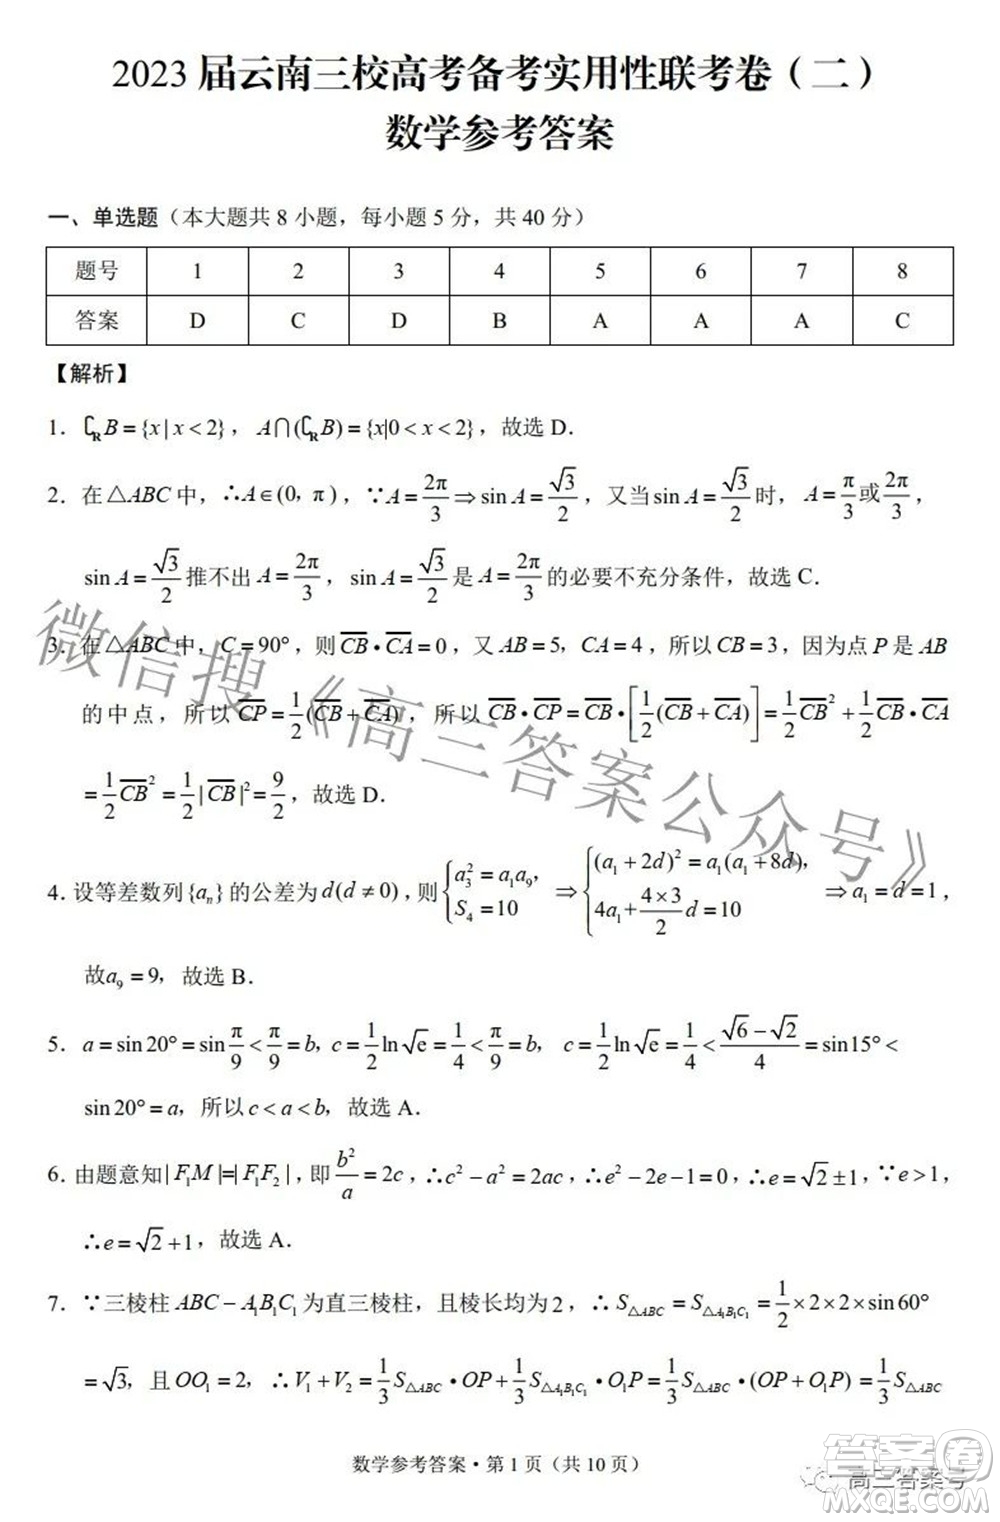 2023 届云南三校高考备考实用性联考卷（二）
数学参考答案
一、单选题（本大题共 8 小题，每小题 5 分，共 40 分）
题号 1 2 3 4 5 6 7 8
答案 D C D B A A A C
【解析】
1. ∁_R B = {x | x < 2}，A∩(∁_R B) = {x|0 < x < 2}，故选 D.
2. 在 △ABC 中，∴A∈(0，π)，∵A = 2π/3 ⇒ sin A = √3/2，又当 sin A = √3/2 时，A = π/3 或 2π/3，
sin A = √3/2 推不出 A = 2π/3，sin A = √3/2 是 A = 2π/3 的必要不充分条件，故选 C.
3. 在 △ABC 中，C = 90°，则 \overline{CB}•\overline{CA} = 0，又 AB = 5，CA = 4，所以 CB = 3，因为点 P 是 AB
的中点，所以 \overline{CP} = 1/2(\overline{CB} + \overline{CA})，所以 \overline{CB}•\overline{CP} = \overline{CB}•[1/2(\overline{CB} + \overline{CA})] = 1/2\overline{CB}² + 1/2\overline{CB}•\overline{CA}
= 1/2\overline{CB}² = 1/2|\overline{CB}|² = 9/2，故选 D.
4. 设等差数列{a_n}的公差为 d(d ≠ 0)，则 {a₃² = a₁a₉，S₄ = 10 ⇒ {(a₁ + 2d)² = a₁(a₁ + 8d)，4a₁ + (4×3)/2 d = 10 ⇒ a₁ = d = 1，
故a₉ = 9，故选 B.
5. a = sin20° = sin π/9 < π/9 = b，c = 1/2 ln√e = 1/4 < π/9 = b，c = 1/2 ln√e = 1/4 < (√6 − √2)/4 = sin15° <
sin20° = a，所以 c < a < b，故选 A.
6. 由题意知 | F₁M |=| F₁F₂ |，即 b²/a = 2c，∴c² − a² = 2ac，∴e² − 2e − 1 = 0，∴e = √2 ± 1，∵e > 1，
∴e = √2 + 1，故选 A.
7. ∵三棱柱 ABC − A₁B₁C₁ 为直三棱柱，且棱长均为 2，∴ S_{△ABC} = S_{△A₁B₁C₁} = 1/2 × 2 × 2 × sin 60°
= √3，且 OO₁ = 2，∴V₁ + V₂ = 1/3 S_{△ABC}•OP + 1/3 S_{△A₁B₁C₁}•O₁P = 1/3 S_{△ABC}•(OP + O₁P) = 1/3 S_{△ABC}
数学参考答案•第 1 页（共 10 页）
微信搜《高三答案公众号》
高三答案号
答案卷
MXQE.COM